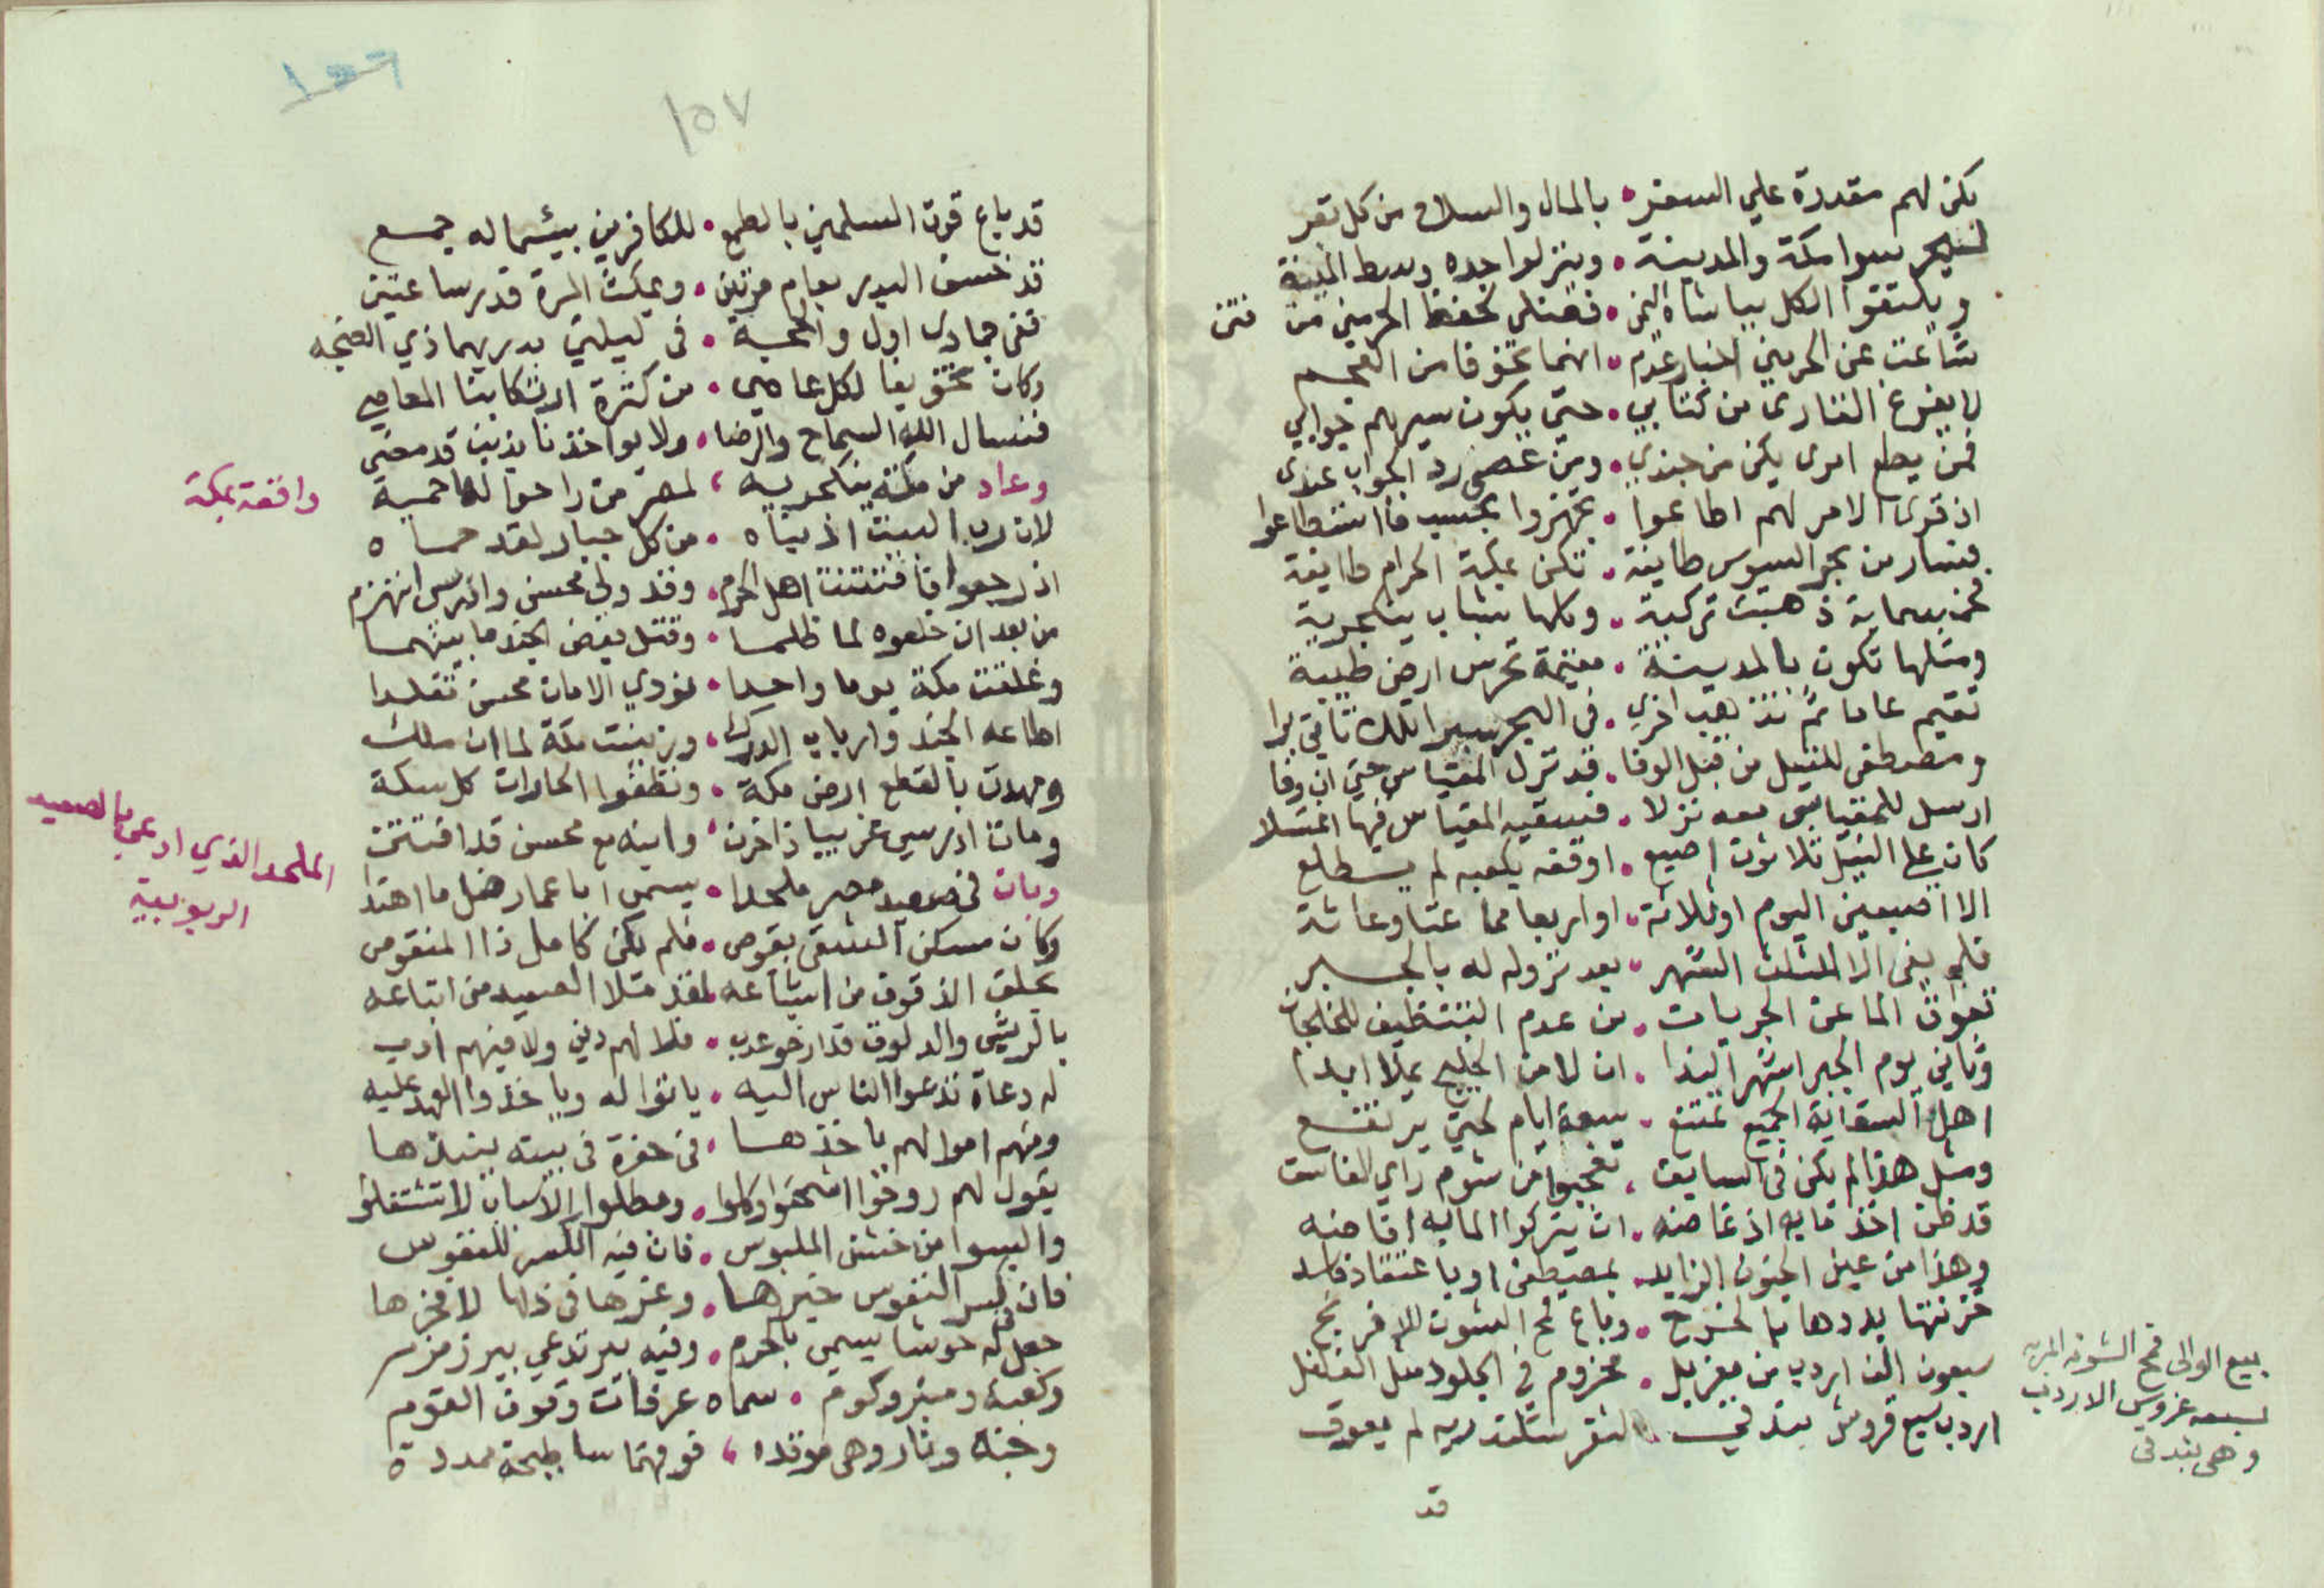 يكن لهم مقدرة علي السفر • بالمال والسلاح من كل نفر
ليحرسوا مكة والمدينة • وينزلوا جده وبسط المينة
ويلتقوا الكل بباشاه اليمن • فصنلي لحفظ الحرمين من فتن
شاعت عن الحرمين اخبار عدم • انهما تخوفا من العجم
لا يفرغ القاري من كتابي • حتى يكون سيرهم جوابي
فمن يطع امري يكن من جندي • ومن عصى رد الجواب عندي
اذ قوى الامر لهم اطاعوا • تجهزوا بحسب ما استطاعوا
فسار من بحر السويس طايفة • تكن بمكة الحرام طايفة
فخمسماية ذهبت تركية • وكلها شباب ينكجرية
ومثلها تكون بالمدينة • مقيمة تحرس ارض طيبة
تقيم عاما ثم تذهب اخري • في البحر سيرا تلك تاتي برا
ومصطفى للنيل من قبل الوفا • قد نزل المقياس حتى ان وفا
ارسل للمقياس معه نزلا • فسقيه المقياس فيها اغتسلا
كان علي النيل ثلاثون اصبع • اوقفه بكعبه لم يستطلع
الا اصبعين اليوم او ثلاثة • او اربعا مما عثا وعاثة
فلم يفي الا لثلث الشهر • بعد نزوله له بالجسر
تعوق الما عن الجريات • من عدم التنظيف للخلجان
وثاني يوم الجبر اشهر الندا • ان لا من الخليج يملا ابدا
اهل السقاية الجميع تمتنع • سبعة ايام لحتى يرتفع
ومثل هذا لم يكن في السابق • تعجبوا من شوم راي الفاسق
قد ظن اخذ مايه اذ غاضه • ان يتركوا الماله افاضه
وهذا من عين الجنون الزايد • بمصطفى او باعتقاد فاسد
خزنتها بددها بالخرج • وباع قمح الشون للافرنج
سبعون الف اردب من مغربل • مخزوم في الجلود مثل الفلفل
اردب سبع قروش بندقي • لثغر سكندريه لم يعوق
قد
بيع الوالى قمح الشونه المريه
بسبعه غروس الاردب
وهى بندقى
١٥٧
١٥٦
قد باع قوت المسلمين بالطمع • للكافرين بيئسما له جمع
قد خسف البدر بعام مرتين • ويمكث المرة قدر ساعتين
ففى جمادى اول والحجة • في ليلتي بدريهما ذي الضجه
وكان تخويفا لكل عاصي • من كثرة ارتكابنا المعاصي
فنسال الله السماح والرضا • ولا يواخذنا بذنب قد مضى
وعاد من مكة ينكجريه • لمصر من راحوا لها حمية
لان رب البيت اذ بناه • من كل جبار لقد حماه
اذ رجعوا فافتتنت اهل الحرم • وقد ولي محسن وادريس انهزم
من بعد ان خلعوه لما ظلما • وقتل بعض الجند ما بينهما
وغلقت مكة يوما واحدا • نودي الامان محسن تقلدا
اطاعه الجند وارباب الدرك • وزينت مكة لما ان ملك
ومهدت بالقطع ارض مكة • ونظفوا الحارات كل سكة
ومات ادريس غريبا ذا حزن • وابنه مع محسن قد افتتن
وبان في صعيد مصر ملحدا • يسمى ابا عمار ضل ما اهتدا
وكان مسكن الشقي بقوص • فلم يكن كامل ذا المنقوص
يحلق الذقون من اشياعه • لقد ملا الصعيد من اتباعه
بالريش والدلوق قد ارخوعدب • فلا لهم دين ولا فيهم ادب
له دعاة تدعوا الناس اليه • ياتوا له وياخذوا العهد عليه
ومنهم اموالهم ياخذها • في حفرة في بيته ينبذها
يقول لهم روحوا اشحتوا وكلوا • وبطلوا الاسباب لا تشتغلوا
والبسوا من خشن الملبوس • فان فيه الكسر للنفوس
فان كسر النفوس خيرها • وعزها في ذلها لا فخرها
جعل له حوشا يسمى بالحرم • وفيه بير تدعي بير زمزم
وكعبة ومنبر وكوم • سماه عرفات وقوف القوم
وجنة ونار وهي موقده • فوقهما ساطيحة ممددة
واقعة بمكة
الملحد الذي ادعى بالصعيد
الربوبية